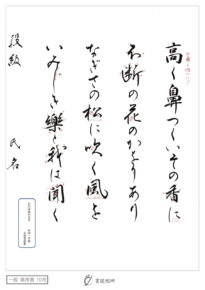 高く鼻つくいその香に
不断の花のかをりあり
なぎさの松に吹く風を
いみじき樂と我は聞く
段級 氏名